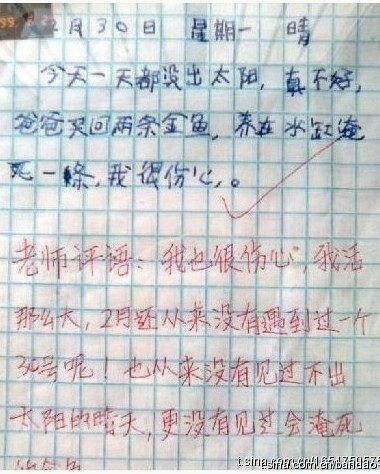 2月30日 星期一 晴
今天一天都没出太阳，真不好，
爸爸买回两条金鱼，养在水缸淹
死一條，我很伤心，。
老师评语：我也很伤心，我活
那么大，2月还从来没有遇到过一个
30号呢！也从来没有见过不出
太阳的晴天，更没有见过会淹死
的金鱼